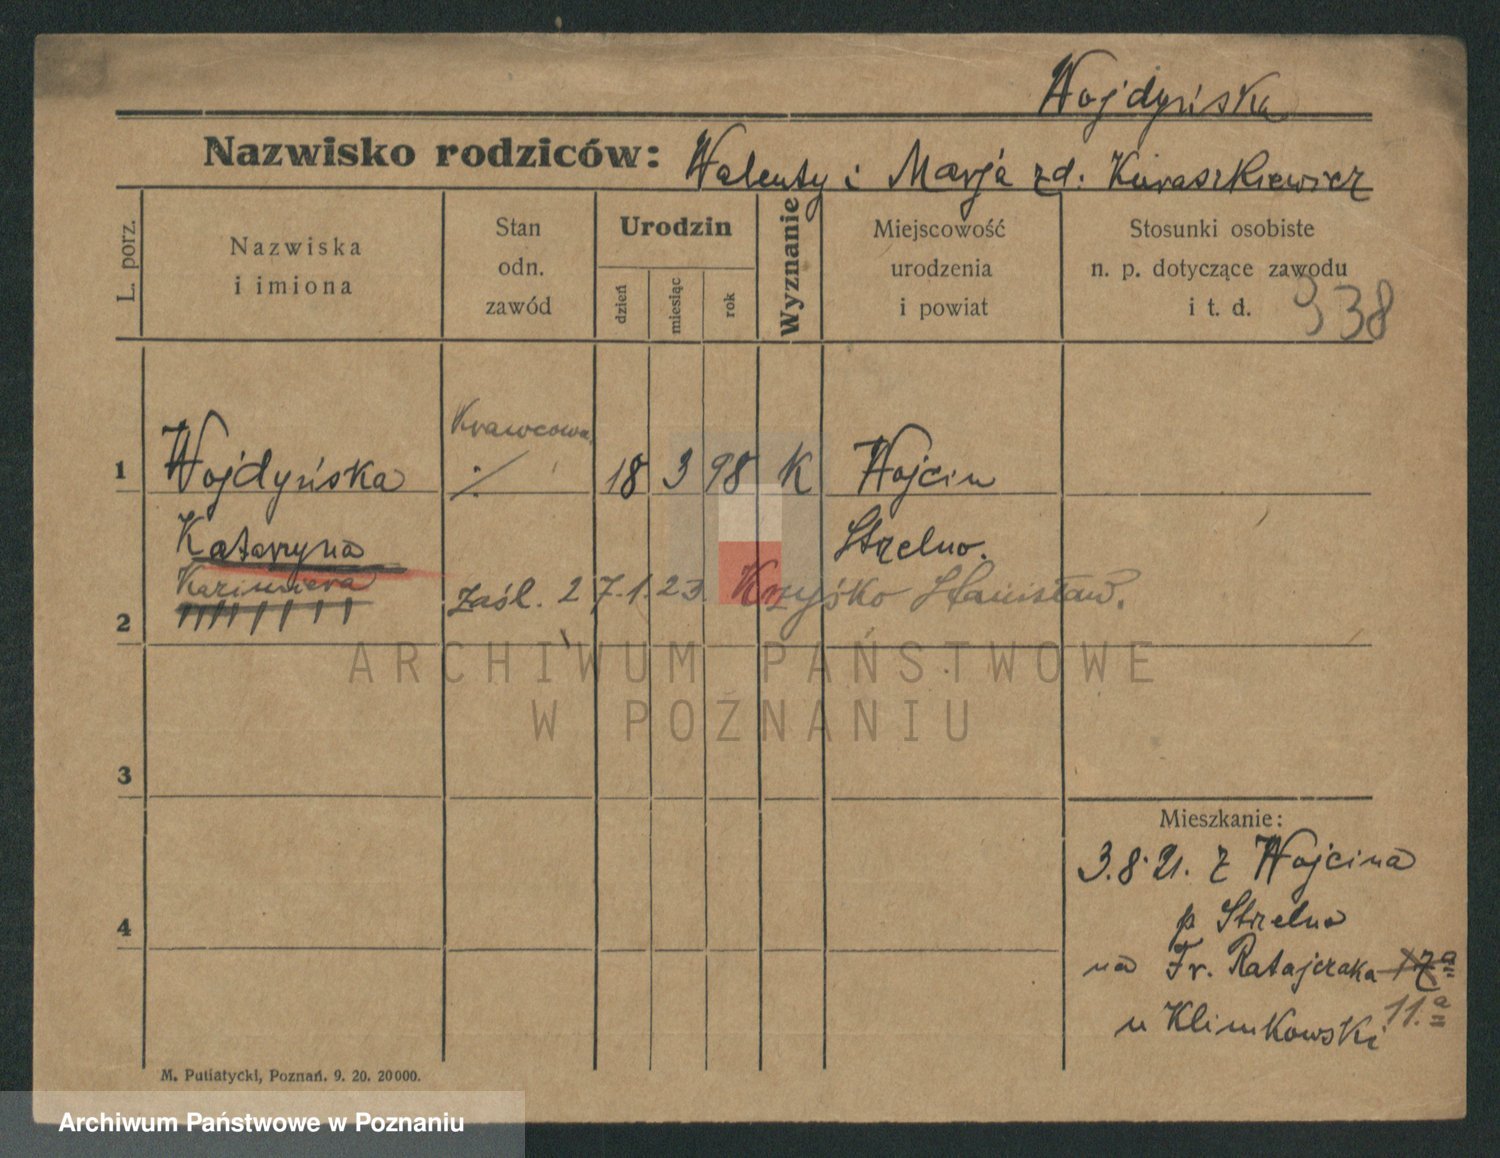 Wojdyńska
Nazwisko rodziców: Walenty i Marja zd. Kuraszkiewicz
L. porz.
Nazwiska
i imiona
Stan
odn.
zawód
Urodzin
dzień
miesiąc
rok
Wyznanie
Miejscowość
urodzenia
i powiat
Stosunki osobiste
n. p. dotyczące zawodu
i t. d.
938
Krawcowa
1 Wojdyńska ./. 18 3 98 K Wojcin
Katarzyna Strzelno.
Kazimiera
2 zaśl. 27.1.23. Krzyśko Stanisław.
3
4
Mieszkanie:
3.8.21. z Wojcina
p Strzelno
na Fr. Ratajczaka 17a
11.a
u Klimkowski
M. Putiatycki, Poznań. 9. 20. 20000.
ARCHIWUM PAŃSTWOWE
W POZNANIU
Archiwum Państwowe w Poznaniu